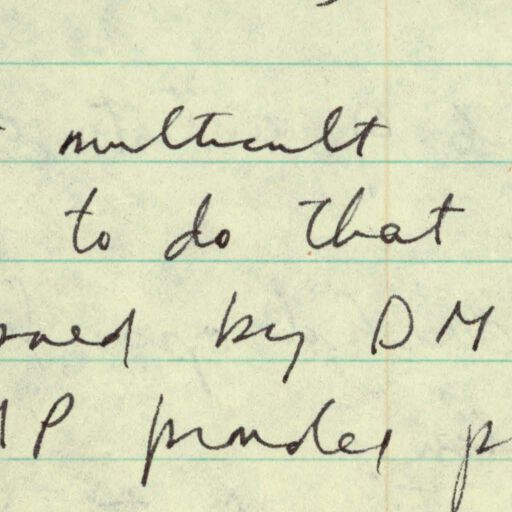 multicult
to do that
by DM
P provides p